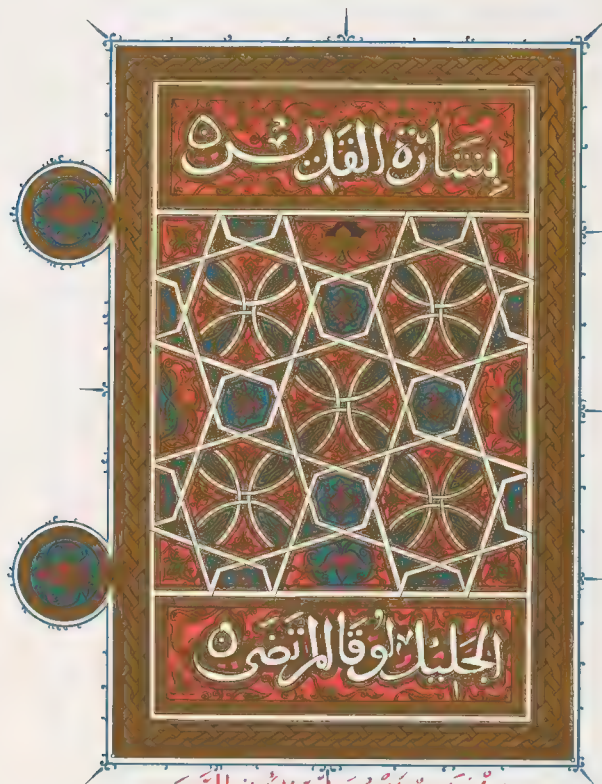 بشارة القديس
الجليل لوقا المرتضى